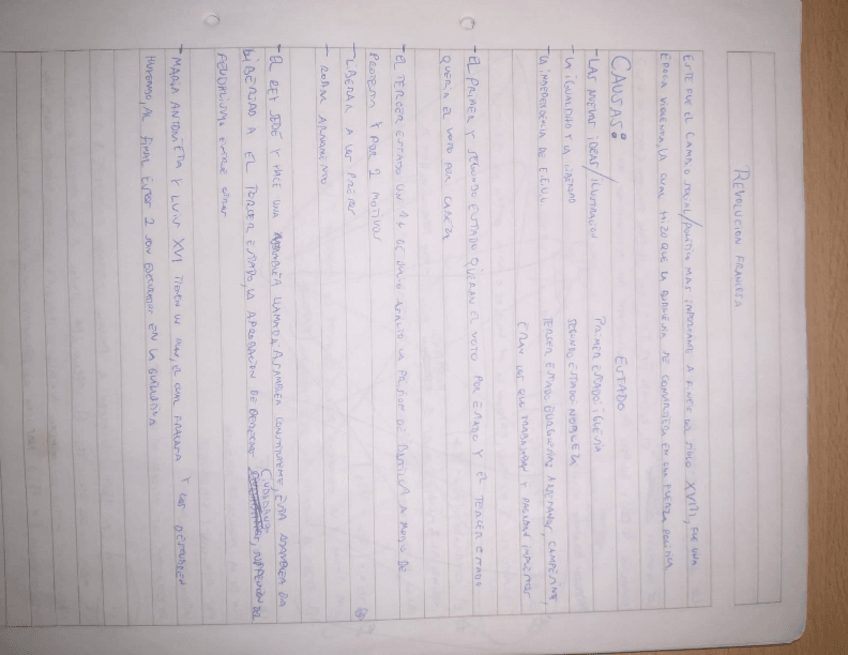 REVOLUCION FRANCESA
ESTE FUE EL CAMBIO SOCIAL/POLITICO MAS IMPORTANTE A FINES DEL SIGLO XVIII, FUE UNA
EPOCA VIOLENTA, LA CUAL HIZO QUE LA BURGUESIA SE CONVIRTIERA EN UNA FUERZA POLITICA
CAUSAS:
ESTADO
- LAS NUEVAS IDEAS/ILUSTRACION
PRIMER ESTADO IGLESIA
- LA IGUALDAD Y LA LIBERTAD
SEGUNDO ESTADO NOBLEZA
- LA INDEPENDENCIA DE E.E.U.U.
TERCER ESTADO BURGUESIA, ARTESANOS, CAMPESINOS,
ERAN LOS QUE TRABAJABAN Y PAGABAN IMPUESTOS
- EL PRIMER Y SEGUNDO ESTADO QUERIAN EL VOTO POR ESTADO Y EL TERCER ESTADO
QUERIA EL VOTO POR CABEZA
- EL TERCER ESTADO UN 14 DE JULIO ASALTO LA PRISION DE BASTILLA A MODO DE
PROTESTA Y POR 2 MOTIVOS
- LIBERAR A LOS PRESOS
- ROBAR ARMAMENTO
- EL REY SEDE Y HACE UNA ASAMBLEA LLAMADA: ASAMBLEA CONSTITUYENTE, ESTA ASAMBLEA DA
LIBERTAD A EL TERCER ESTADO, LA APROBACION DE DERECHOS CIUDADANOS, SUPRESION DEL
FEUDALISMO, ENTRE OTRAS
- MARIA ANTONIETA Y LUIS XVI TIENEN UN PLAN, EL CUAL FRACASA Y LOS DESCUBREN
HUYENDO, AL FINAL ESTOS 2 SON EJECUTADOS EN LA GUILLOTINA